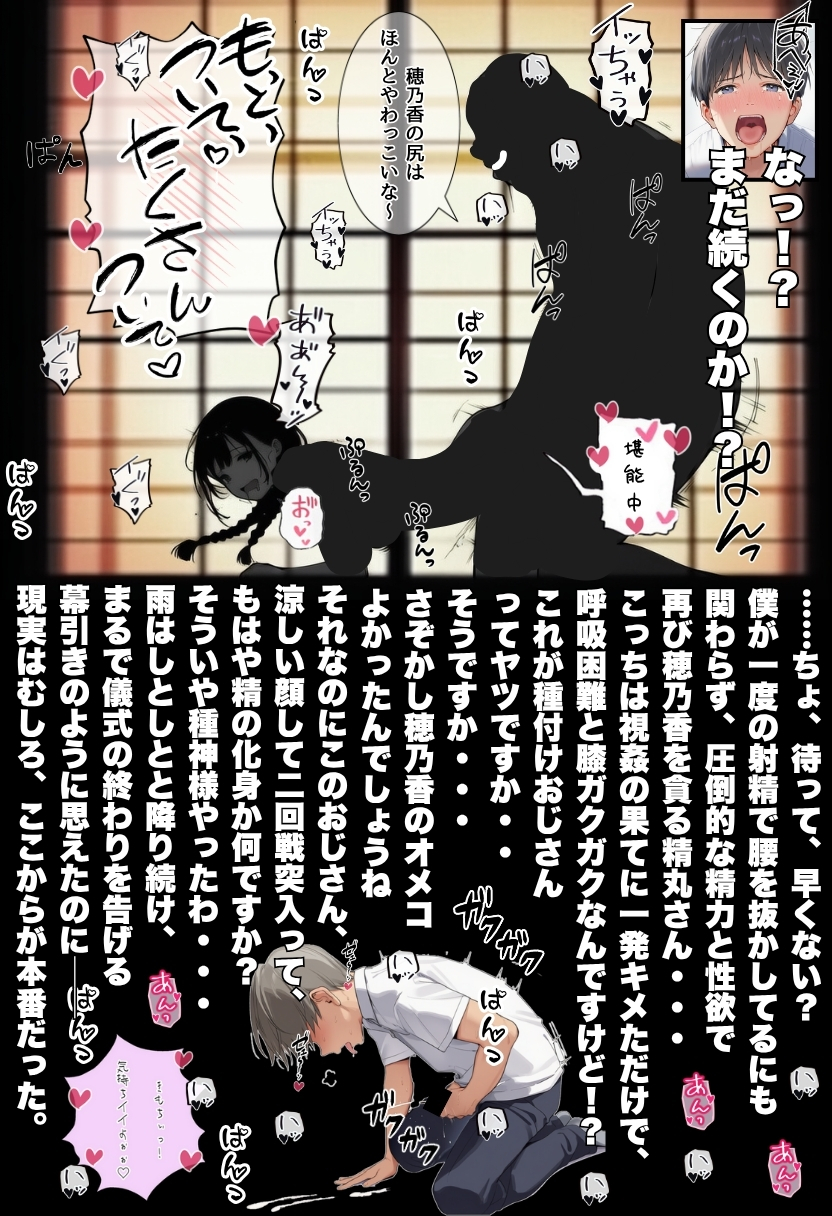 あへぇ
なっ！？
まだ続くのか！？
イッちゃう
ぱんっ
穂乃香の尻は
ほんとやわっこいな～
もっと、
ついてぇ♡
たくさん
ついて♡
ぱん
ぱんっ
ぱんっ
ぱんっ
イッちゃう
ぱんっ
堪能中
ぷるんっ
ぷるんっ
おっ
ぱんっ
ぱんっ
……ちょ、待って、早くない？
僕が一度の射精で腰を抜かしてるにも
関わらず、圧倒的な精力と性欲で
再び穂乃香を貪る精丸さん・・・・
こっちは視姦の果てに一発キメただけで、
呼吸困難と膝ガクガクなんですけど！？
これが種付けおじさん
ってヤツですか・・・
そうですか・・・・
さぞかし穂乃香のオメコ
よかったんでしょうね
それなのにこのおじさん、
涼しい顔して二回戦突入って、
もはや精の化身か何ですか？
そういや種神様やったわ・・・・
雨はしとしとと降り続け、
まるで儀式の終わりを告げる
幕引きのように思えたのに―
現実はむしろ、ここからが本番だった。
ガクガク
ぱんっ
ガクガク
ぱんっ
ぱんっ
あんっ
あんっ
あんっ
きもちぃっ！